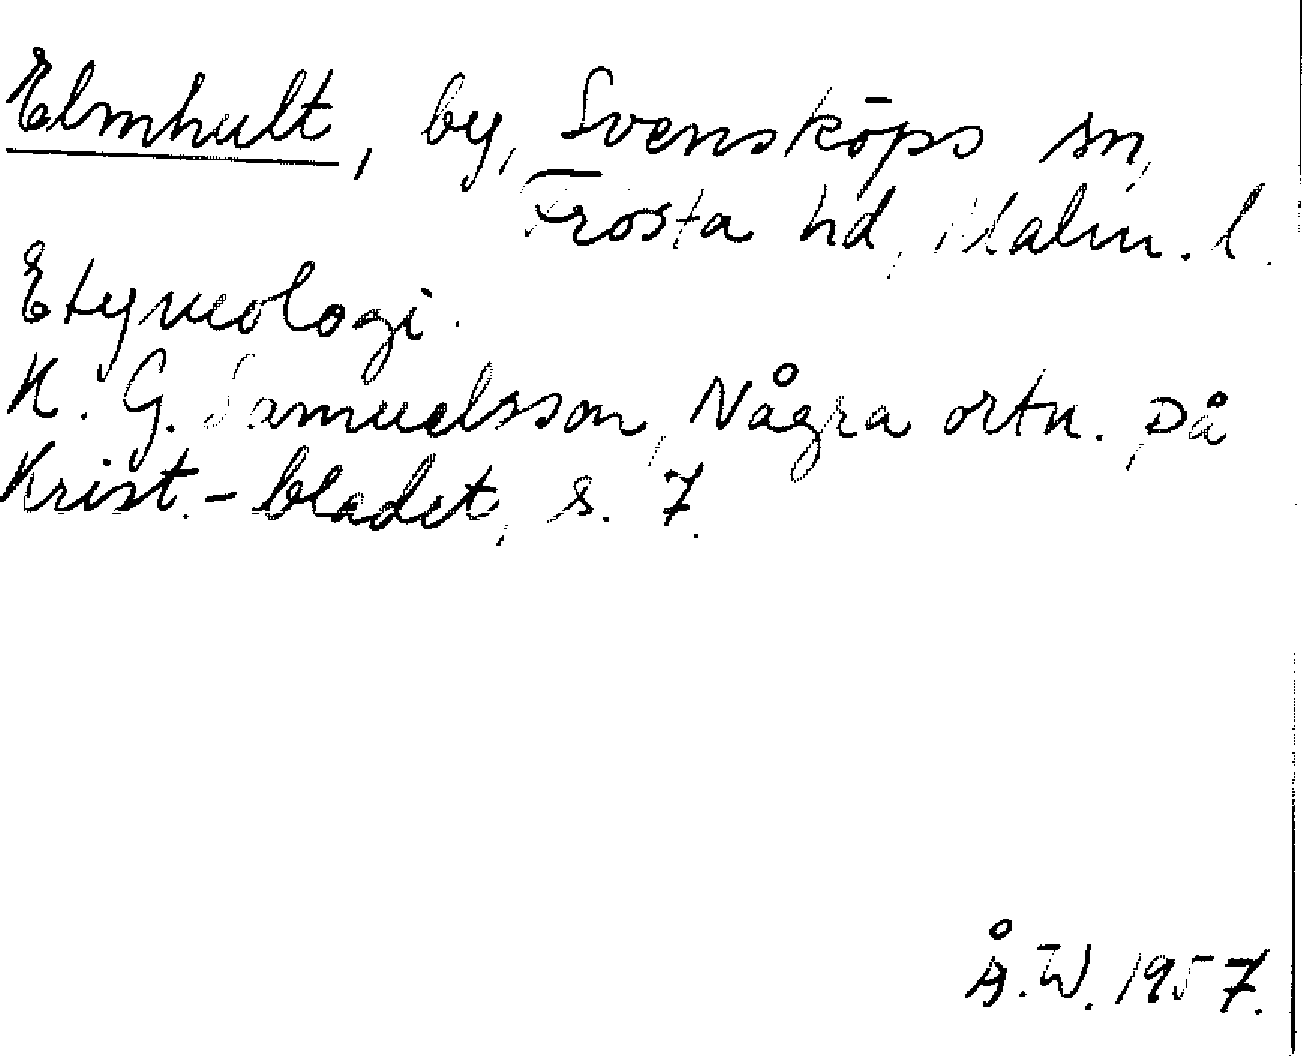 Elmhult, by, Svensköps sn,
Frosta hd, Malm. l.
Etymologi.
K. G. Samuelsson, Några ortn. på
Krist.-bladet, s. 7.
Å.W. 1957.